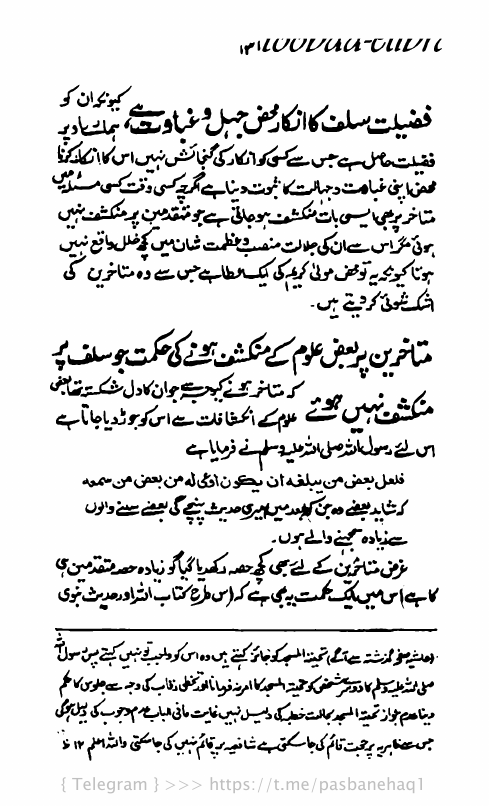 ۱۳۱
فضیلت سلف کا انکار محض جہل و غباوت ہے، کیونکہ ان کو ہمارے اوپر
فضیلت حاصل ہے جس سے کسی کو انکار کی گنجائش نہیں اس کا انکار کرنا
محض اپنی غباوت و جہالت کا ثبوت دینا ہے اگرچہ کسی وقت کسی مسئلہ میں
متاخر پر بھی ایسی بات منکشف ہو جاتی ہے جو متقدمین پر منکشف نہیں
ہوئی مگر اس سے ان کی جلالت منصب و عظمت شان میں کچھ خلل واقع نہیں
ہوتا کیونکہ یہ تو محض مولیٰ کریم کی ایک عطا ہے جس سے وہ متاخرین کی
اشک شوئی کر دیتے ہیں۔
متاخرین پر بعض علوم کے منکشف ہونے کی حکمت جو سلف پر
منکشف نہیں ہوئے کہ متاخر ہونے کیوجہ سے جو ان کا دل شکستہ تھا بعض
علوم کے انکشافات سے اس کو جوڑ دیا جاتا ہے
اس لئے رسول اللہ صلی اللہ علیہ وسلم نے فرمایا ہے
فلعل بعض من یبلغه ان یکون اوعی له من بعض من سمعه
کہ شاید بعضے وہ جن کو بعد میں میری حدیث پہنچے گی بعضے سننے والوں
سے زیادہ سمجھنے والے ہوں۔
غرض متاخرین کے لئے بھی کچھ حصہ رکھدیا گیا گو زیادہ حصہ متقدمین ہی
کا ہے اس میں ایک حکمت یہ بھی ہے کہ (اس طرح کتاب اللہ اور حدیث نبوی
(حاشیہ صفحہ گزشتہ سے آگے) تحیۃ المسجد کو جائز کہتے ہیں وہ اس کو واجب تو نہیں کہتے پس رسول اللہ
صلی اللہ علیہ وسلم کا دوسرے شخص کو تحیۃ المسجد کا امر نہ فرمانا اور تخطی رقاب کی وجہ سے جلوس کا حکم
دینا عدم جواز تحیۃ المسجد بحالت خطبہ کی دلیل نہیں غایت مافی الباب عدم وجوب کی دلیل ہوگی
جس سے ظاہریہ پر حجت قائم کی جا سکتی ہے شافعیہ پر قائم نہیں کی جا سکتی واللہ اعلم ۱۲ ظ
{ Telegram } >>> https://t.me/pasbanehaq1